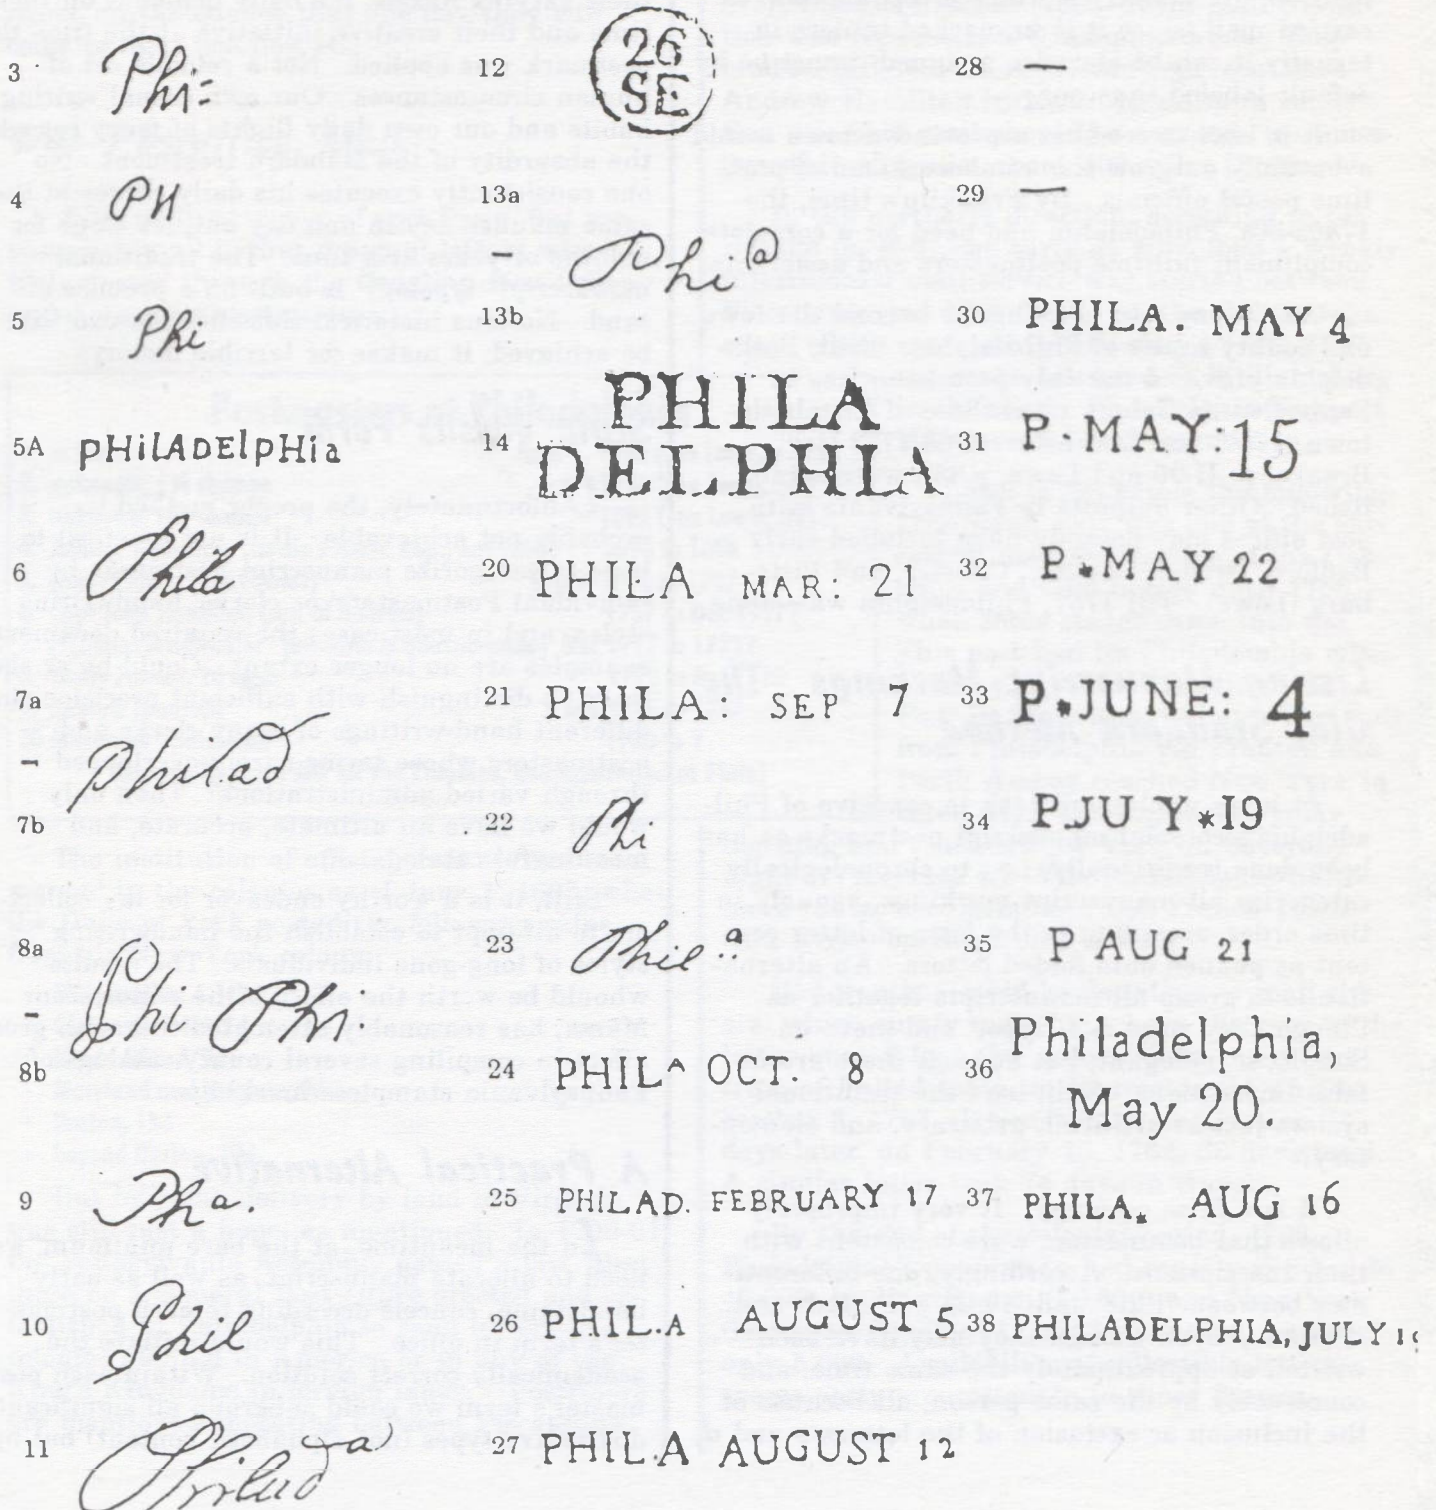 3 Phi-
4 PH
5 Phi
5A PHilADElpHia
6 Phila
7a
- Philad
7b
8a
- Phi Phi.
8b
9 Pha.
10 Phil
11 Philad a
12 26
SE
13a
- Phi a
13b
14 PHILA
DELPHIA
20 PHILA MAR: 21
21 PHILA: SEP 7
22 Phi
23 Phil a
24 PHILA OCT. 8
25 PHILAD. FEBRUARY 17
26 PHIL.A AUGUST 5
27 PHILA AUGUST 12
28 —
29 —
30 PHILA. MAY 4
31 P. MAY: 15
32 P * MAY 22
33 P * JUNE: 4
34 P.JU Y * 19
35 P AUG 21
36 Philadelphia,
May 20.
37 PHILA * AUG 16
38 PHILADELPHIA, JULY